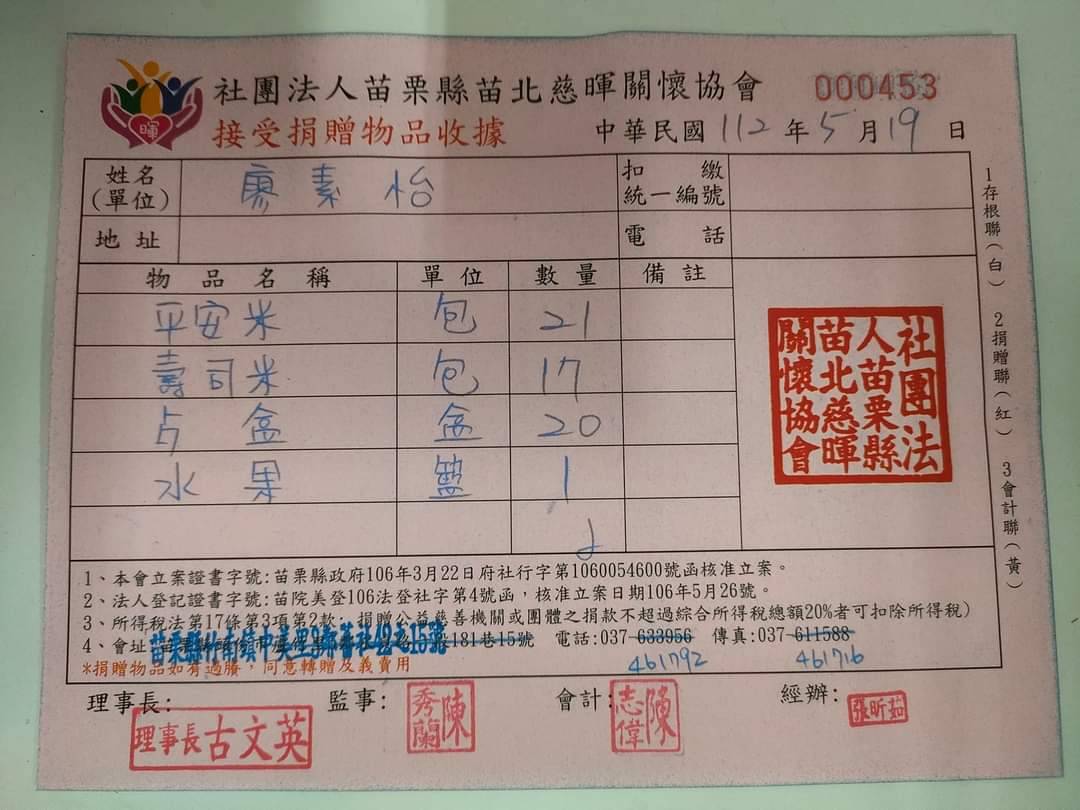 社團法人苗栗縣苗北慈暉關懷協會
000453
暉
接受捐贈物品收據
中華民國 112 年 5 月 19 日
姓名(單位) 廖素怡 扣繳統一編號
地址 電話
物品名稱 單位 數量 備註
平安米 包 21
壽司米 包 17
占盒 盒 20
水果 籃 1
社團法人苗栗縣苗北慈暉關懷協會
1存根聯(白) 2捐贈聯(紅) 3會計聯(黃)
1、本會立案證書字號:苗栗縣政府106年3月22日府社行字第1060054600號函核准立案。
2、法人登記證書字號:苗院美登106法登社字第4號函，核准立案日期106年5月26號。
3、所得稅法第17條第3項第2款：捐贈公益慈善機關或團體之捐款不超過綜合所得稅總額20%者可扣除所得稅)
4、會址 苗栗縣竹南鎮中美里9鄰 181巷15號 電話:037-633956 傳真:037-611588
461792 461716
*捐贈物品如有過賸，同意轉贈及義賣用
理事長: 監事: 會計: 經辦:
理事長古文英 陳秀蘭 陳志偉 張昕茹